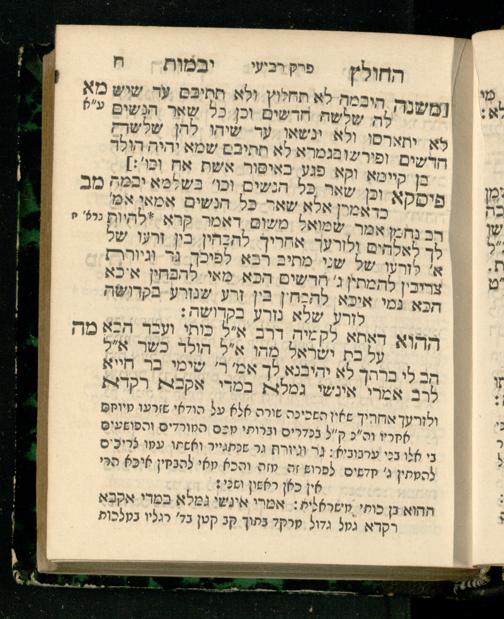 החולץ פרק רביעי יבמות ח
[משנה היבמה לא תחלוץ ולא תתיבם עד שיש מא
לה שלשה חדשים וכן כל שאר הנשים ע״א
לא יתארסו ולא ינשאו עד שיהו להן שלשה
חדשים ופירשו בגמרא לא תתיבם שמא יהיה הולד
בן קיימא וקא פגע באיסור אשת אח וכו׳:]
פיסקא וכן שאר כל הנשים וכו׳ בשלמא יבמה מב
כדאמרן אלא שאר כל הנשים אמאי אמ׳
רב נחמן אמר שמואל משום דאמר קרא *להיות
לך לאלהים ולזרעך אחריך להבחין בין זרעו של
א׳ לזרעו של שני מתיב רבא לפיכך גר וגיורת
צריכין להמתין ג׳ חדשים הכא מאי להבחין איכא
הכא נמי איכא להבחין בין זרע שנזרע בקדושה
לזרע שלא נזרע בקדושה:
ההוא דאתא לקמיה דרב א״ל כותי ועבד הבא מה
על בת ישראל מהו א״ל הולד כשר א״ל
הב לי ברתך לא יהיבנא לך אמ׳ ר׳ שימי בר חייא
לרב אמרי אינשי גמלא במדי אקבא רקדא
ולזרעך אחריך שאין השכינה שורה אלא על הודאי שזרעו מיוחס
אחריו
בי אלו בני ערבוביא: גר וגיורת גר שנתגייר ואשתו עמו צריכים
להמתין ג׳ חדשים לפרוש זה מזה והכא מאי להבחין איכא הרי
אין כאן ראשון ושני:
ההוא בן כותי מישראלית: אמרי אינשי גמלא במדי אקבא
רקדא גמל גדול מרקד בתוך קב קטן בד׳ רגליו במלכות